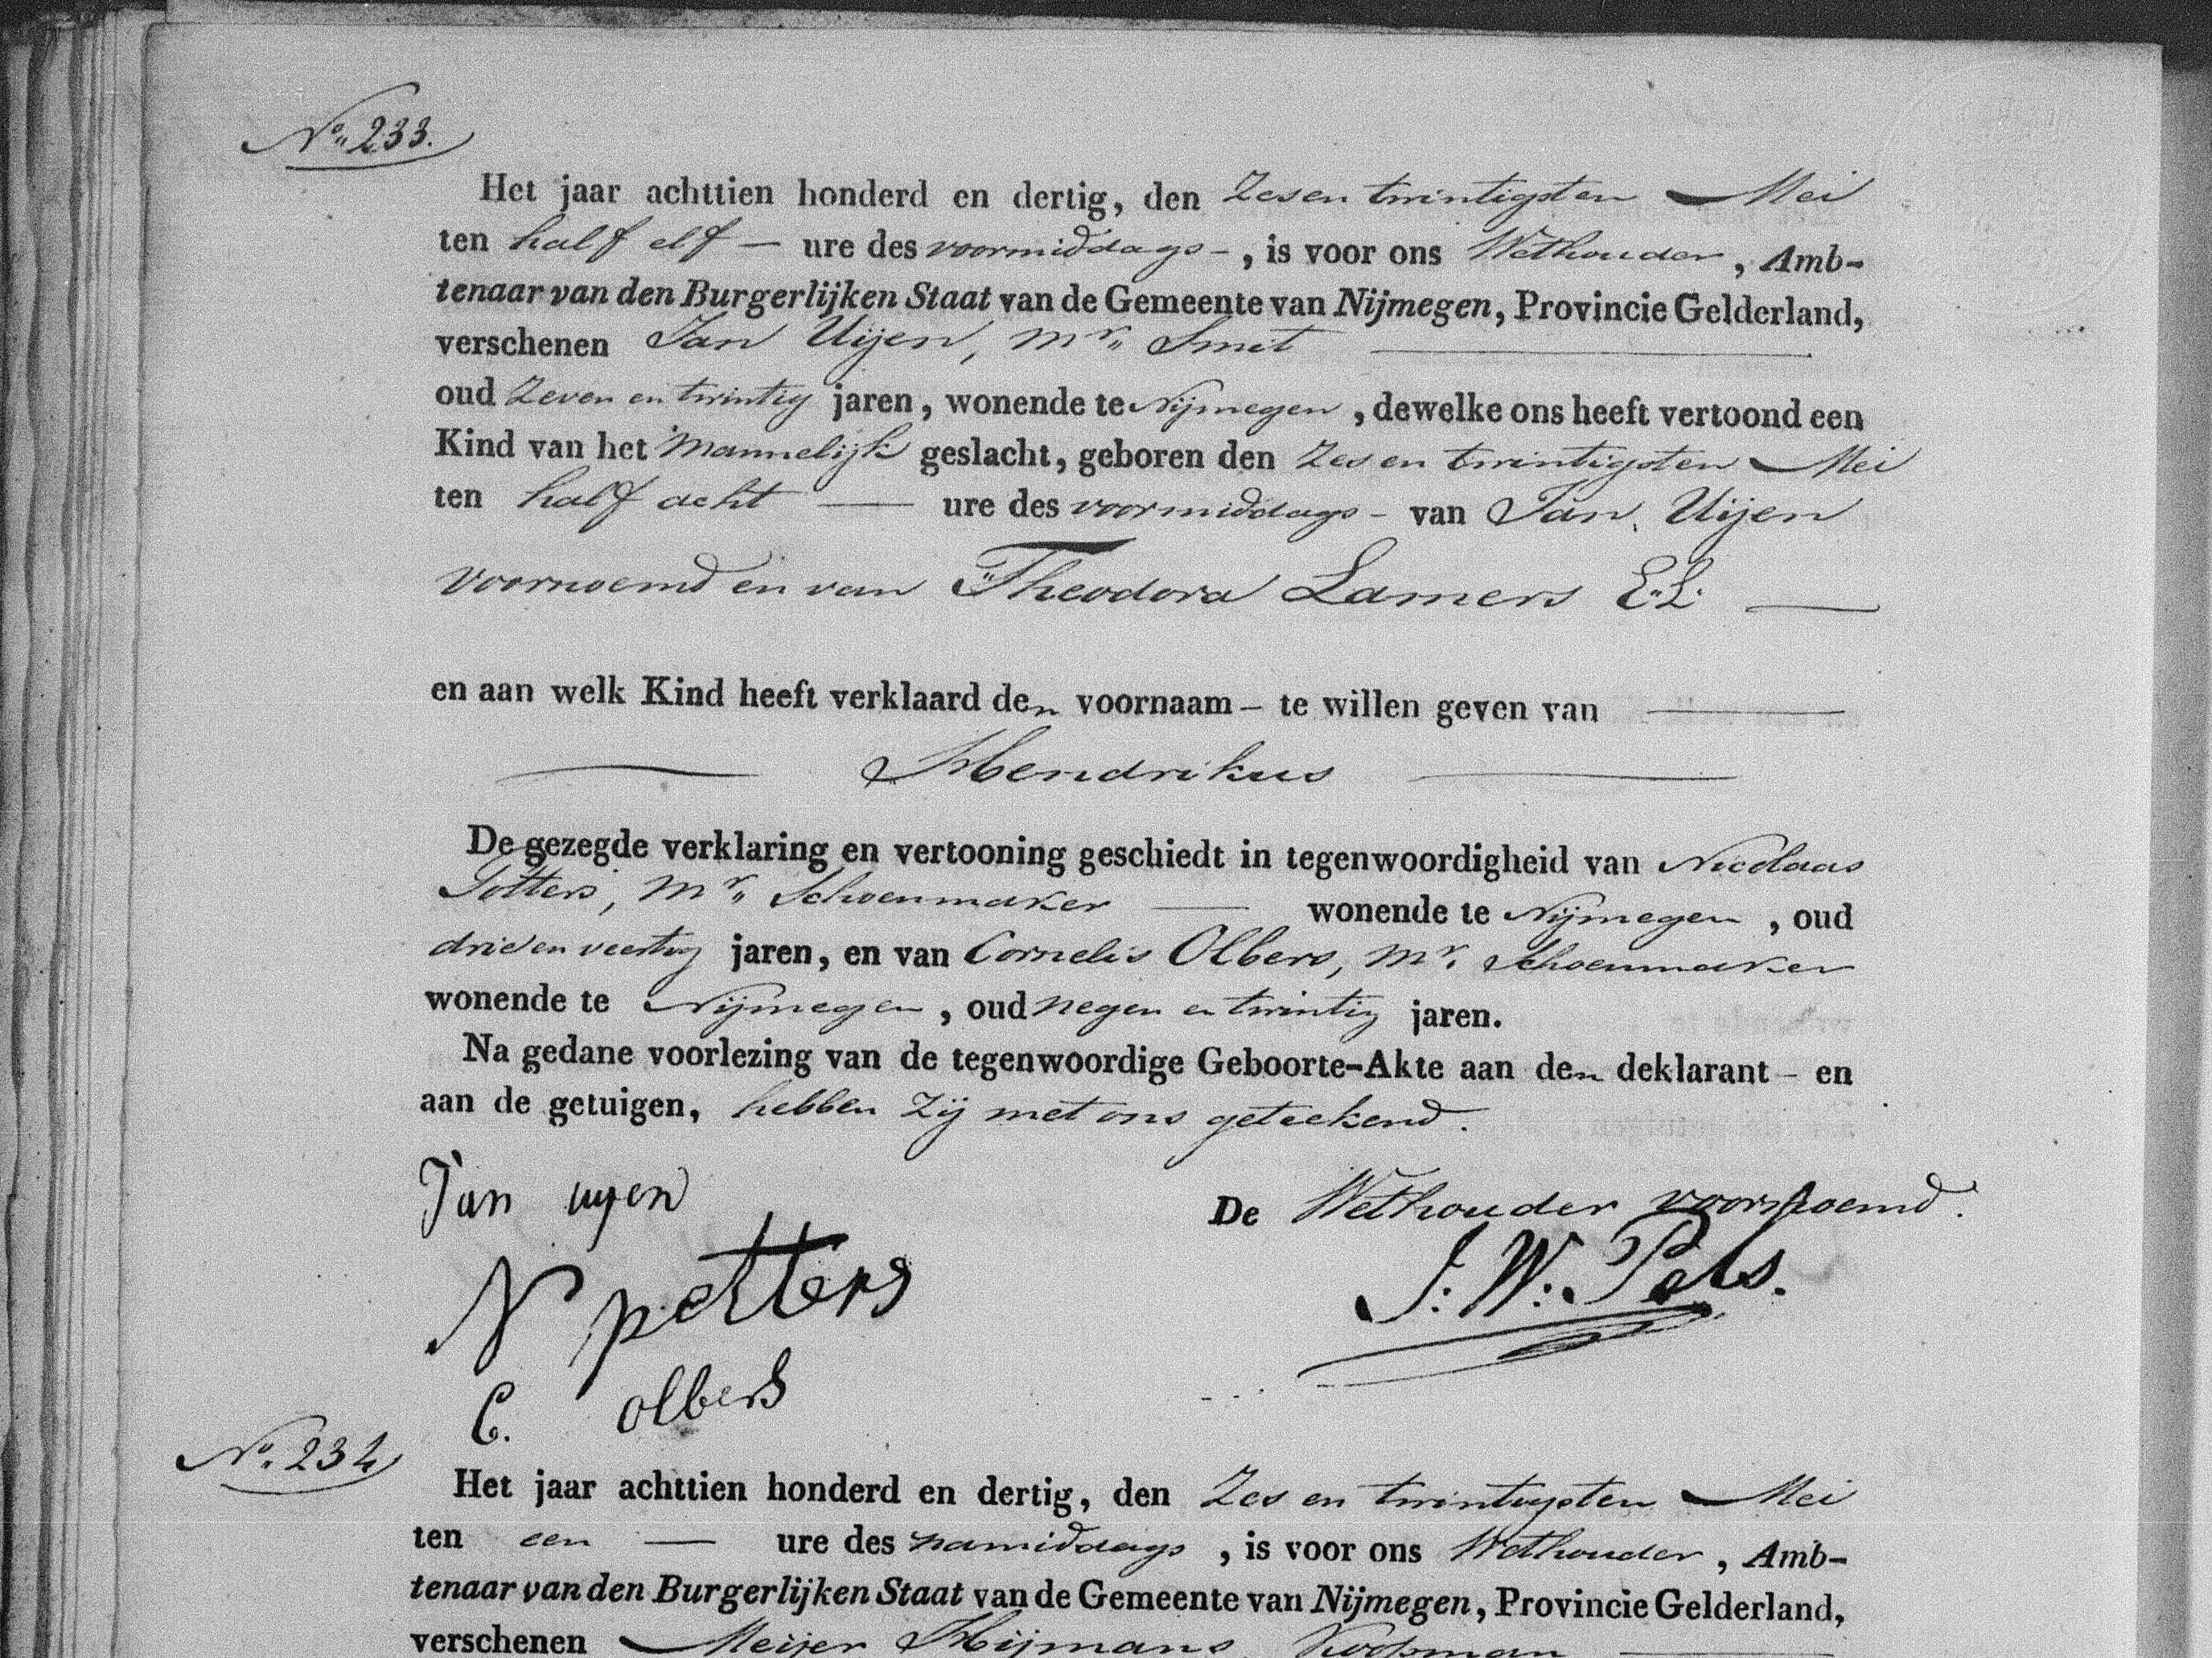 No. 233.
Het jaar achttien honderd en dertig, den Zesen twintigsten Mei
ten half elf — ure des voormiddags -, is voor ons Wethouder, Amb-
tenaar van den Burgerlijken Staat van de Gemeente van Nijmegen, Provincie Gelderland,
verschenen Jan Uijen, Mr. Smit
oud Zeven en twintig jaren, wonende te Nijmegen, dewelke ons heeft vertoond een
Kind van het Mannelijk geslacht, geboren den Zes en twintigsten Mei
ten half acht — ure des voormiddags - van Jan Uijen
voornoemd en van Theodora Lamers E.L. —
en aan welk Kind heeft verklaard den voornaam - te willen geven van —
— Hendrikus —
De gezegde verklaring en vertooning geschiedt in tegenwoordigheid van Nicolaas
Potters, Mr. Schoenmaker — wonende te Nijmegen, oud
drie en veertig jaren, en van Cornelis Olbers, Mr. Schoenmaker
wonende te Nijmegen, oud negen en twintig jaren.
Na gedane voorlezing van de tegenwoordige Geboorte-Akte aan den deklarant - en
aan de getuigen, hebben zij met ons geteekend.
Jan uyen
De Wethouder voornoemd.
N petters
J: W: Pels.
C. olbers
No. 234
Het jaar achttien honderd en dertig, den Zes en twintigsten Mei
ten een — ure des namiddags, is voor ons Wethouder, Amb-
tenaar van den Burgerlijken Staat van de Gemeente van Nijmegen, Provincie Gelderland,
verschenen Meijer Hijmans, Koopman